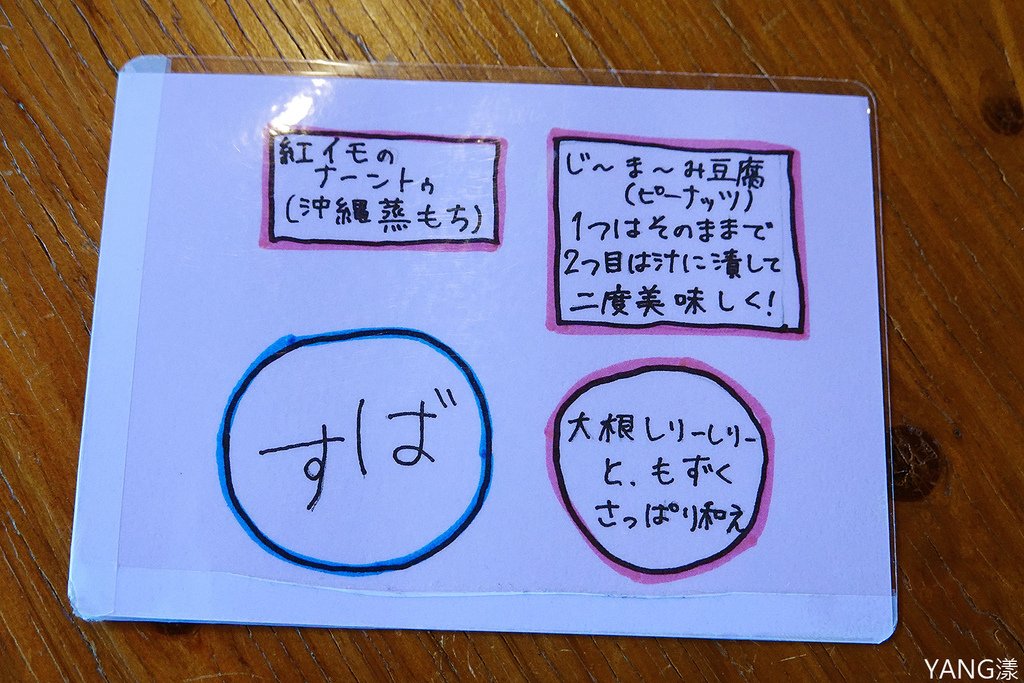 紅イモの
ナーントゥ
(沖縄蒸もち)
じ〜ま〜み豆腐
(ピーナッツ)
1つはそのままで
2つ目は汁に漬して
二度美味しく!
すば
大根しりーしりー
と、もずく
さっぱり和え
YANG漾